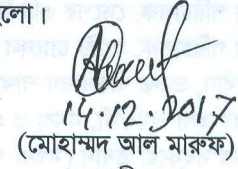 হলো।
14.12.2017
(মোহাম্মদ আল মারুফ)